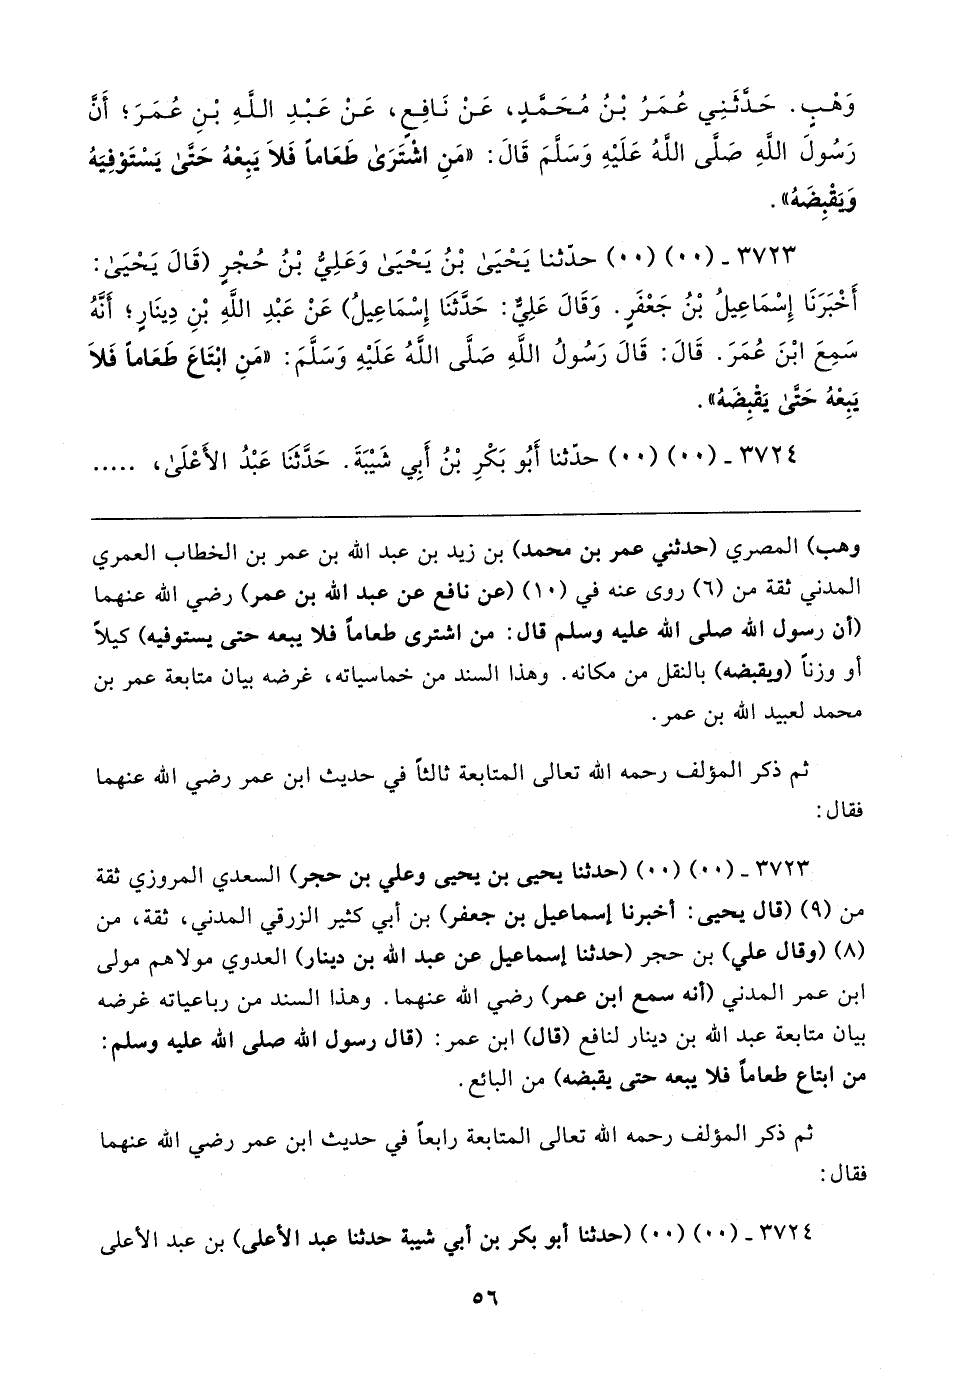 وَهْبٍ. حَدَّثَنِي عُمَرُ بْنُ مُحَمَّدٍ، عَنْ نَافِعٍ، عَنْ عَبْدِ اللَّهِ بْنِ عُمَرَ؛ أَنَّ
رَسُولَ اللَّهِ صَلَّى اللَّهُ عَلَيْهِ وَسَلَّمَ قَالَ: «مَنِ اشْتَرَىٰ طَعَاماً فَلاَ يَبِعْهُ حَتَّىٰ يَسْتَوْفِيَهُ
وَيَقْبِضَهُ».
٣٧٢٣ ـ (٠٠) (٠٠) حدّثنا يَحْيَىٰ بْنُ يَحْيَىٰ وَعَلِيُّ بْنُ حُجْرٍ (قَالَ يَحْيَىٰ:
أَخْبَرَنَا إِسْمَاعِيلُ بْنُ جَعْفَرٍ. وَقَالَ عَلِيٌّ: حَدَّثَنَا إِسْمَاعِيلُ) عَنْ عَبْدِ اللَّهِ بْنِ دِينَارٍ؛ أَنَّهُ
سَمِعَ ابْنَ عُمَرَ. قَالَ: قَالَ رَسُولُ اللَّهِ صَلَّى اللَّهُ عَلَيْهِ وَسَلَّمَ: «مَنِ ابْتَاعَ طَعَاماً فَلاَ
يَبِعْهُ حَتَّىٰ يَقْبِضَهُ».
٣٧٢٤ ـ (٠٠) (٠٠) حدّثنا أَبُو بَكْرِ بْنُ أَبِي شَيْبَةَ. حَدَّثَنَا عَبْدُ الأَعْلَىٰ، .....
وهب) المصري (حدثني عمر بن محمد) بن زيد بن عبد الله بن عمر بن الخطاب العمري
المدني ثقة من (٦) روى عنه في (١٠) (عن نافع عن عبد الله بن عمر) رضي الله عنهما
(أن رسول الله صلى الله عليه وسلم قال: من اشترى طعاماً فلا يبعه حتى يستوفيه) كيلاً
أو وزناً (ويقبضه) بالنقل من مكانه. وهذا السند من خماسياته، غرضه بيان متابعة عمر بن
محمد لعبيد الله بن عمر.
ثم ذكر المؤلف رحمه الله تعالى المتابعة ثالثاً في حديث ابن عمر رضي الله عنهما
فقال:
٣٧٢٣ ـ (٠٠) (٠٠) (حدثنا يحيى بن يحيى وعلي بن حجر) السعدي المروزي ثقة
من (٩) (قال يحيى: أخبرنا إسماعيل بن جعفر) بن أبي كثير الزرقي المدني، ثقة، من
(٨) (وقال علي) بن حجر (حدثنا إسماعيل عن عبد الله بن دينار) العدوي مولاهم مولى
ابن عمر المدني (أنه سمع ابن عمر) رضي الله عنهما. وهذا السند من رباعياته غرضه
بيان متابعة عبد الله بن دينار لنافع (قال) ابن عمر: (قال رسول الله صلى الله عليه وسلم:
من ابتاع طعاماً فلا يبعه حتى يقبضه) من البائع.
ثم ذكر المؤلف رحمه الله تعالى المتابعة رابعاً في حديث ابن عمر رضي الله عنهما
فقال:
٣٧٢٤ ـ (٠٠) (٠٠) (حدثنا أبو بكر بن أبي شيبة حدثنا عبد الأعلى) بن عبد الأعلى
٥٦